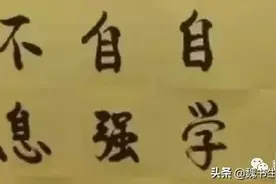 自学
自强
不息
头条 @魏书